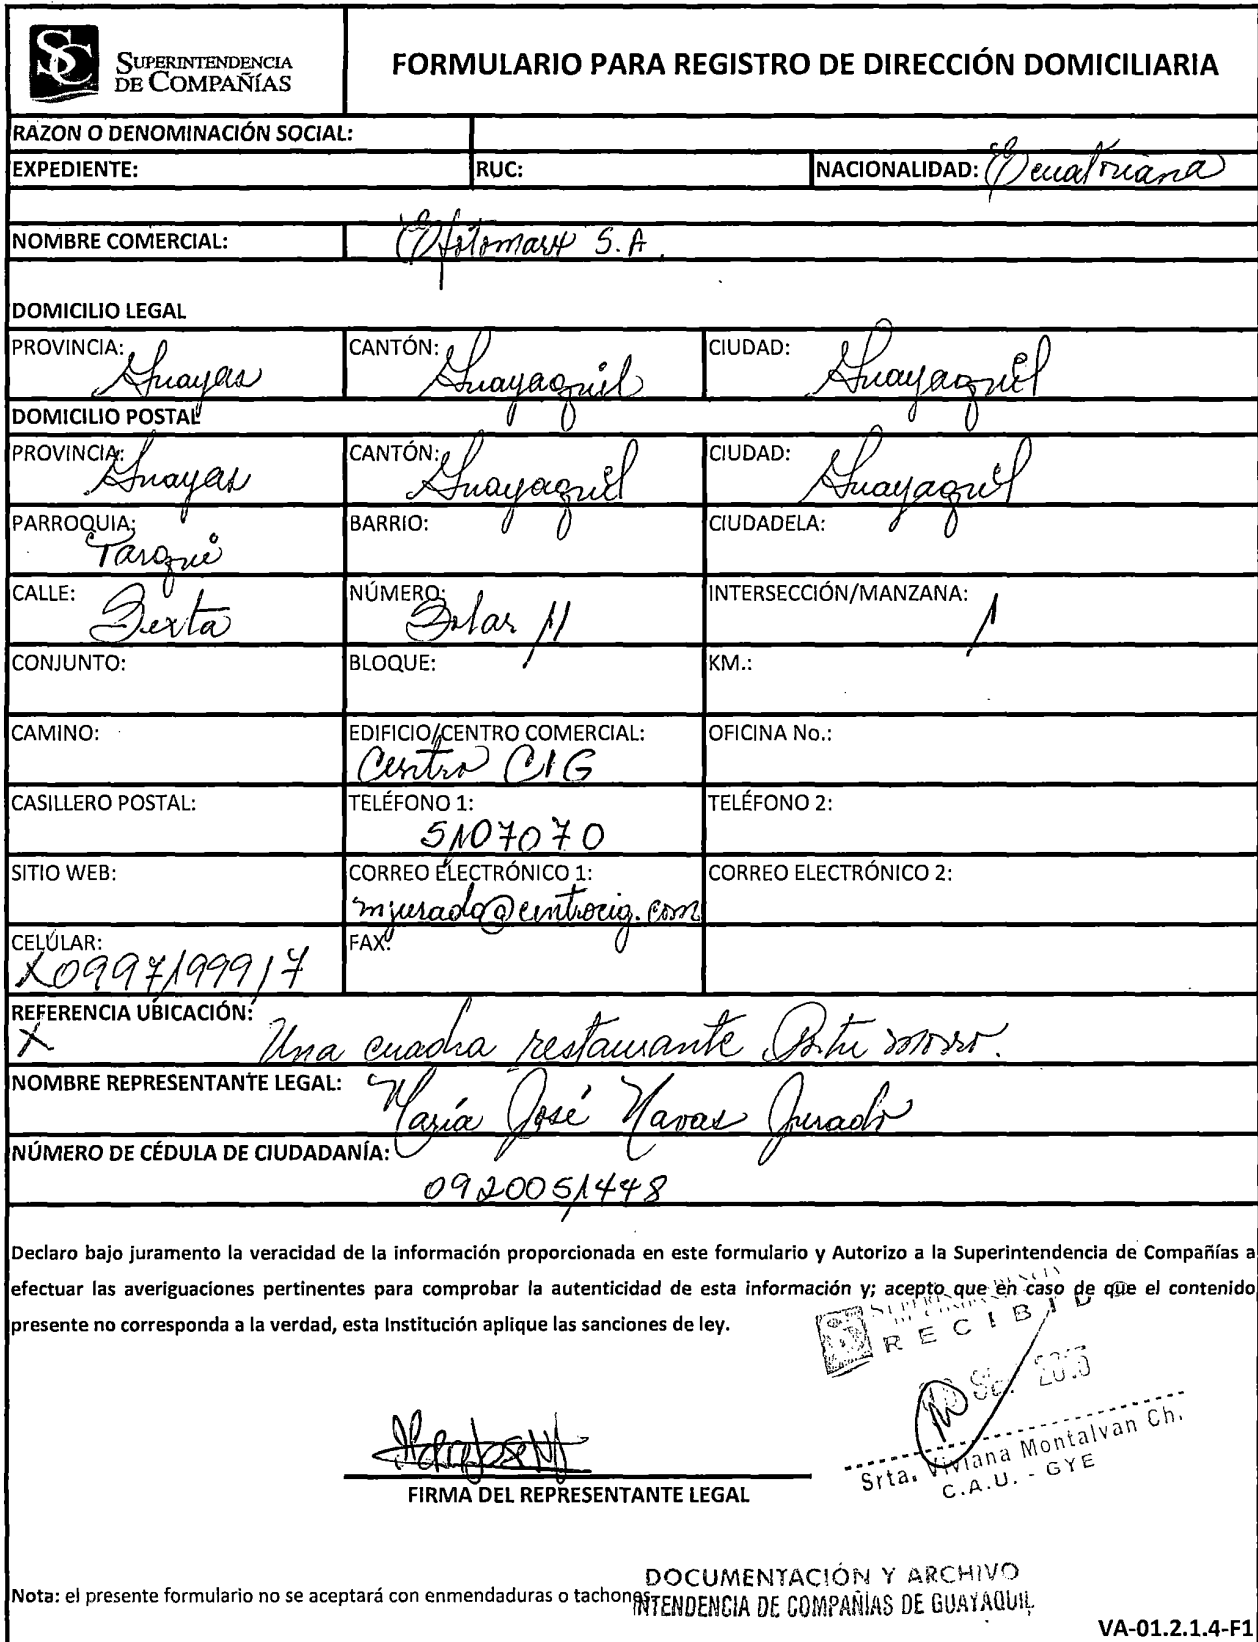 SC SUPERINTENDENCIA DE COMPAÑÍAS
FORMULARIO PARA REGISTRO DE DIRECCIÓN DOMICILIARIA
RAZON O DENOMINACIÓN SOCIAL:
EXPEDIENTE: RUC: NACIONALIDAD: Ecuatoriana
NOMBRE COMERCIAL: S.A.
DOMICILIO LEGAL
PROVINCIA: Guayas CANTÓN: Guayaquil CIUDAD: Guayaquil
DOMICILIO POSTAL
PROVINCIA: Guayas CANTÓN: Guayaquil CIUDAD: Guayaquil
PARROQUIA: Tarqui BARRIO: CIUDADELA:
CALLE: Sexta NÚMERO: Solar 11 INTERSECCIÓN/MANZANA: 1
CONJUNTO: BLOQUE: KM.:
CAMINO: EDIFICIO/CENTRO COMERCIAL: Centro CIG OFICINA No.:
CASILLERO POSTAL: TELÉFONO 1: 5107070 TELÉFONO 2:
SITIO WEB: CORREO ELECTRÓNICO 1: mjurado@centrocig.com CORREO ELECTRÓNICO 2:
CELÚLAR: X0997199917 FAX:
REFERENCIA UBICACIÓN: X Una cuadra restaurante
NOMBRE REPRESENTANTE LEGAL: María José Navas Jurado
NÚMERO DE CÉDULA DE CIUDADANÍA: 0920051448
Declaro bajo juramento la veracidad de la información proporcionada en este formulario y Autorizo a la Superintendencia de Compañías a
efectuar las averiguaciones pertinentes para comprobar la autenticidad de esta información y; acepto que en caso de que el contenido
presente no corresponda a la verdad, esta Institución aplique las sanciones de ley.
RECIBID
Srta. Viviana Montalvan Ch.
C.A.U. - GYE
FIRMA DEL REPRESENTANTE LEGAL
DOCUMENTACIÓN Y ARCHIVO
Nota: el presente formulario no se aceptará con enmendaduras o tachones
INTENDENCIA DE COMPAÑIAS DE GUAYAQUIL
VA-01.2.1.4-F1